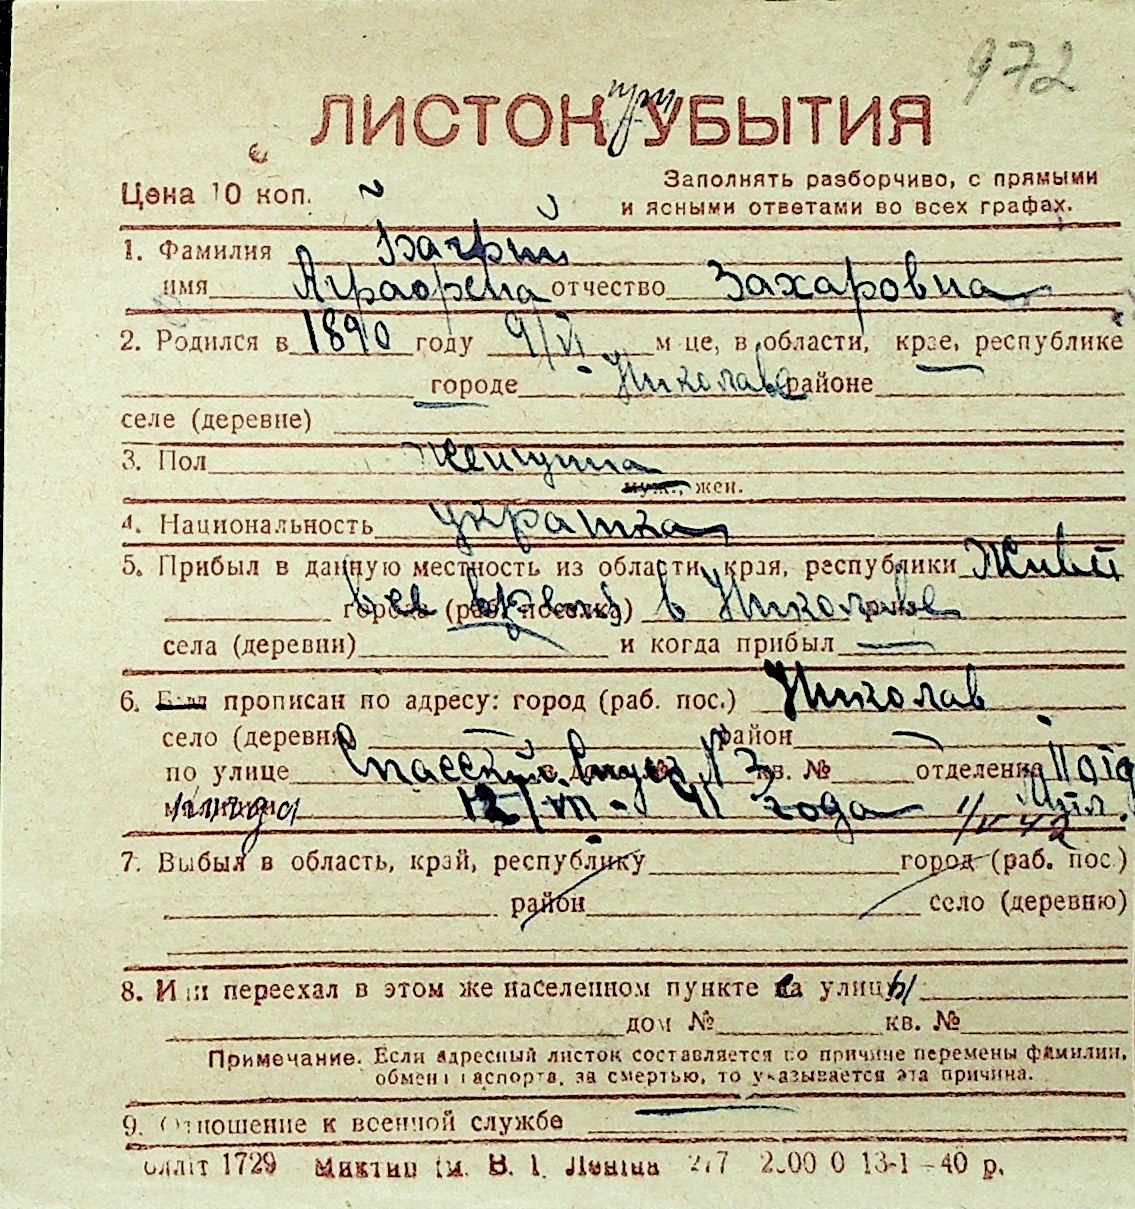 972
ЛИСТОК при УБЫТИЯ
Цена 10 коп.
Заполнять разборчиво, с прямыми
и ясными ответами во всех графах.
1. Фамилия Багрий
имя Аграфена отчество Захаровна
2. Родился в 1890 году 9/VI м це, в области, крае, республике
городе Николаве районе
селе (деревне)
3. Пол женщина
муж., жен.
4. Национальность украинка
5. Прибыл в данную местность из области, края, республики Живет
города (раб. поселка) все время в Николаве
села (деревни) и когда прибыл
6. Был прописан по адресу: город (раб. пос.) Николав
село (деревня) район
по улице Спасский Спуск № 3 кв. № отделение II отд
милиции 12/VII - 41 года Мил.
1/II 42
7. Выбыл в область, край, республику город (раб. пос.)
район село (деревню)
8. Или переехал в этом же населенном пункте са улицы
дом № кв. №
Примечание. Если адресный листок составляется по причине перемены фамилии,
обмена паспорта, за смертью, то указывается эта причина.
9. Отношение к военной службе
1729 ім. В. І. Леніна 13-1-40 р.